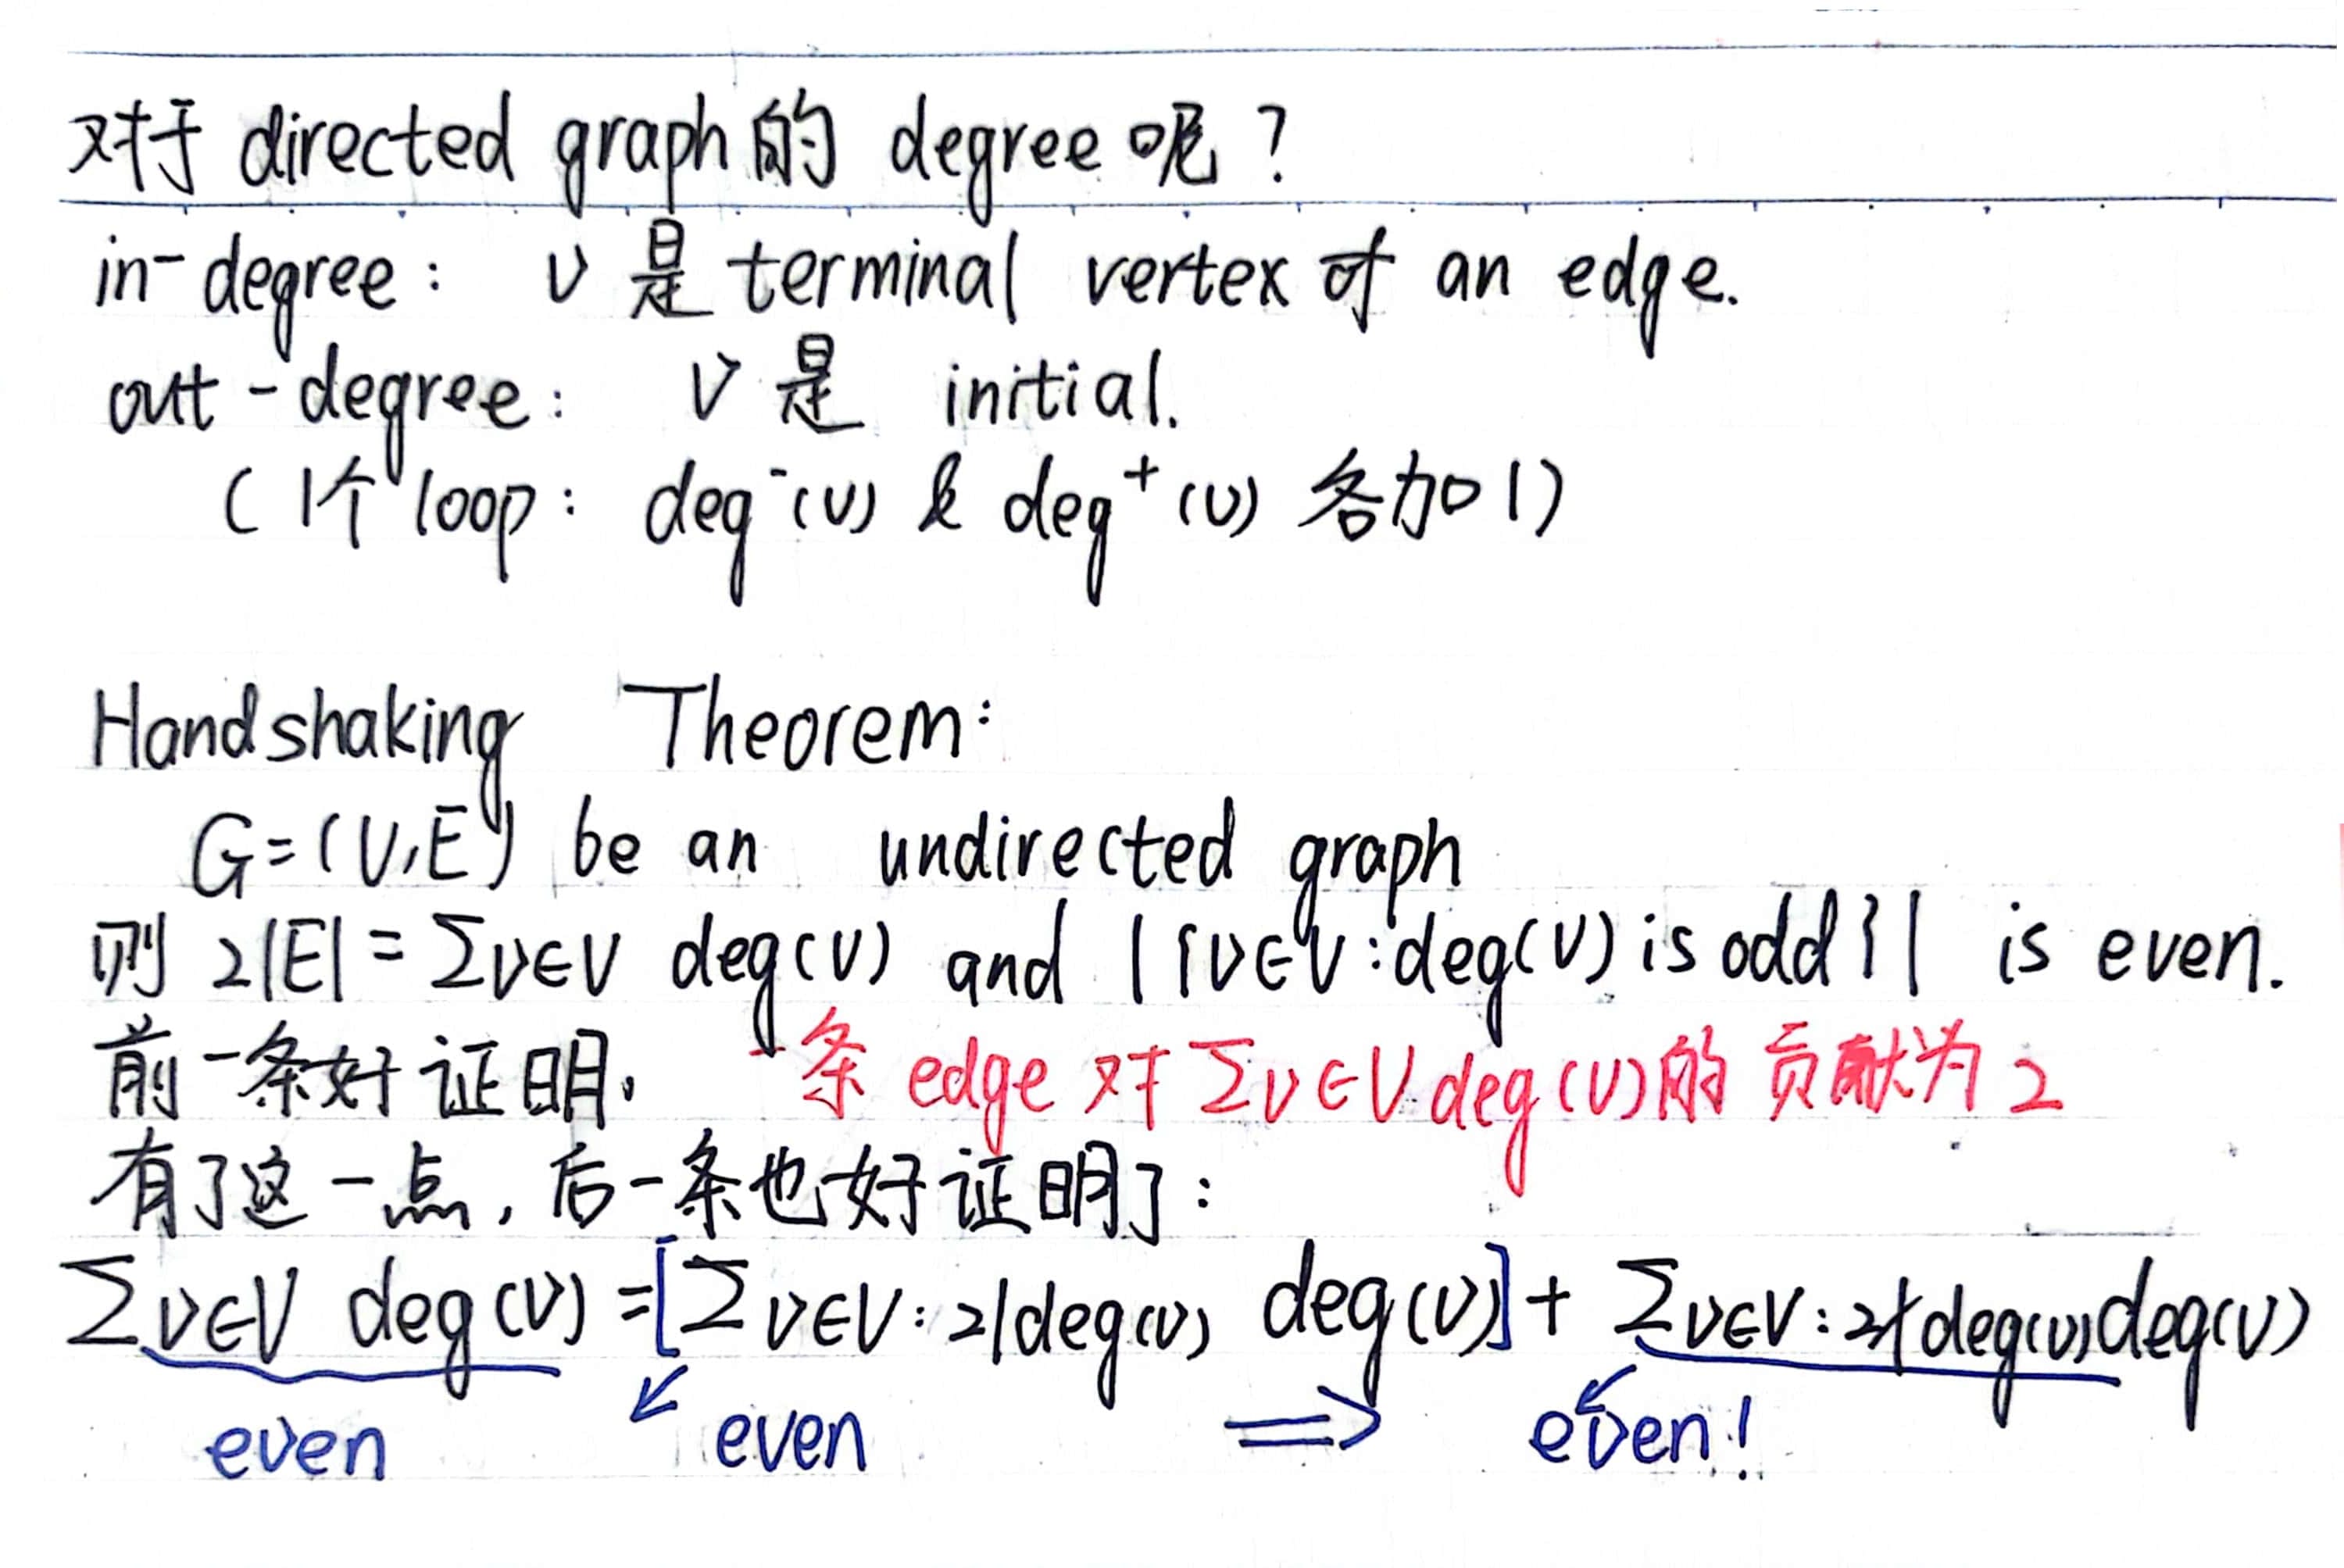 对于 directed graph 的 degree 呢？
in-degree： v 是 terminal vertex of an edge.
out-degree： v 是 initial.
（1个 loop： deg⁻(v) & deg⁺(v) 各加1）
Handshaking Theorem：
G=(V,E) be an undirected graph
则 2|E| = Σv∈V deg(v) and |{v∈V:deg(v) is odd}| is even.
前一条好证明. 一条 edge 对 Σv∈V deg(v)的 贡献为 2
有了这一点，后一条也好证明了：
Σv∈V deg(v) =[Σv∈V:2|deg(v) deg(v)]+ Σv∈V:2∤deg(v) deg(v)
even even ⟹ even!